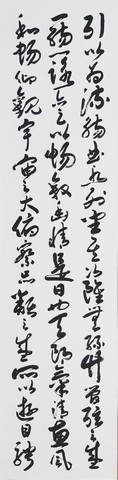 引以為流觴曲水列坐其次雖無絲竹管弦之盛
一觴一詠亦足以暢敘幽情是日也天朗氣清惠風
和暢仰觀宇宙之大俯察品類之盛所以遊目騁